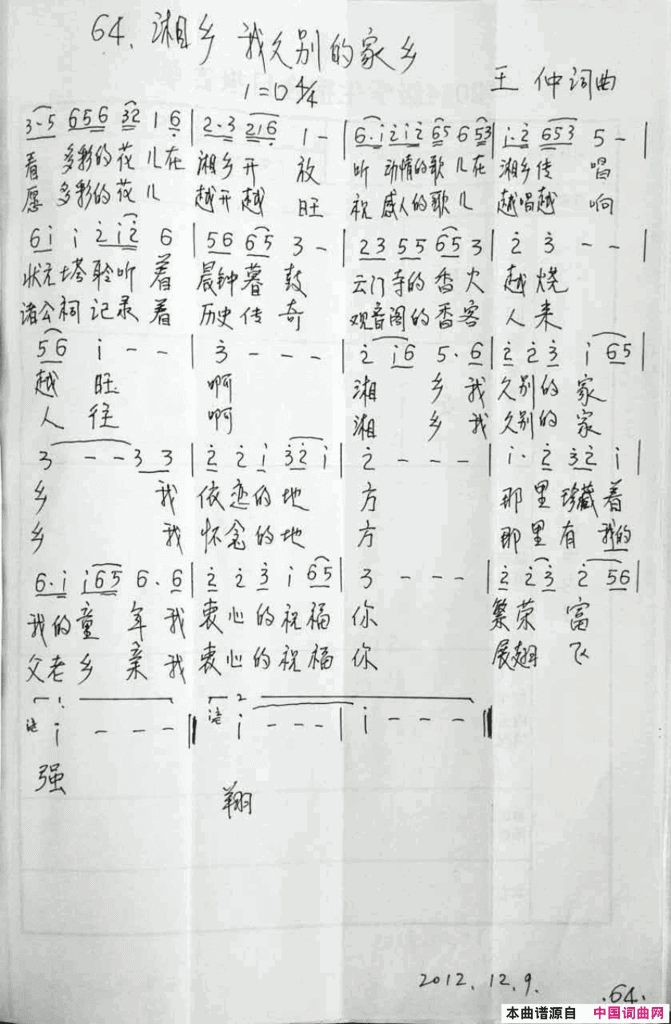 64. 湘乡 我久别的家乡
1=D 4/4
王 仲词曲
3·5 656 32 1 6 | 2·3 216 1 - | 6·i 2i2 65 6 53 | i·2 653 5 - |
看 多彩的花儿在 湘乡开 放 听 动情的歌儿在 湘乡传 唱
愿 多彩的花儿 越开越 旺 祝 感人的歌儿 越唱越 响
6i i 2i2 6 | 56 65 3 - | 23 55 65 3 | 2 3 - - |
状元塔聆听 着 晨钟暮鼓 云门寺的香火 越烧
诸公祠记录着 历史传奇 观音阁的香客 人来
56 i - - | 3 - - - | 2 i6 5· 6 | 2 2 3 i 65 |
越 旺 啊 湘 乡 我 久别的 家
人 往 啊 湘 乡 我 久别的 家
3 - - 3 3 | 2 2 i 32 i | 2 - - - | i· 2 32 i |
乡 我 依恋的地 方 那里珍藏着
乡 我 怀念的地 方 那里有 我的
6·i i65 6· 6 | 2 2 3 i 65 | 3 - - - | 2 23 2 56 |
我的童 年 我 衷心的祝福 你 繁荣 富
父老乡 亲 我 衷心的祝福 你 展翅 飞
1.
2
i - - - || i - - - | i - - - ||
强
翔
2012.12.9.
·64·
本曲谱源自 中国词曲网